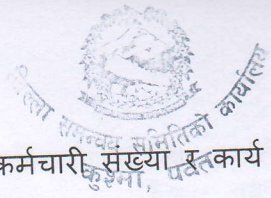 जिल्ला समन्वय समितिको कार्यालय
कर्मचारी संख्या र कार्य
कुश्मा, पर्वत